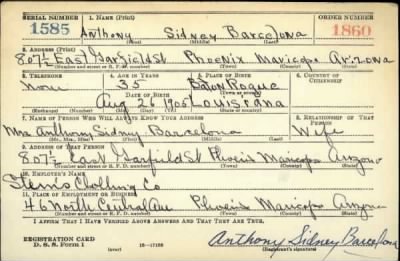 SERIAL NUMBER 1. NAME (Print) ORDER NUMBER
1585 Anthony Sidney Barcelona 1860
(First) (Middle) (Last)
2. ADDRESS (Print)
807½ East Garfield St Phoenix Maricopa Arizona
(Number and street or R. F. D. number) (Town) (County) (State)
3. TELEPHONE 4. AGE IN YEARS 5. PLACE OF BIRTH 6. COUNTRY OF CITIZENSHIP
None 35 Baton Rogue
DATE OF BIRTH (Town or county)
Aug 26 1905 Louisiana
(Exchange) (Number) (Mo.) (Day) (Yr.) (State or country)
7. NAME OF PERSON WHO WILL ALWAYS KNOW YOUR ADDRESS 8. RELATIONSHIP OF THAT PERSON
Mrs Anthony Sidney Barcelona Wife
(Mr., Mrs., Miss) (First) (Middle) (Last)
9. ADDRESS OF THAT PERSON
807½ East Garfield St Phoenix Maricopa Arizona
(Number and street or R. F. D. number) (Town) (County) (State)
10. EMPLOYER'S NAME
Clothing Co
11. PLACE OF EMPLOYMENT OR BUSINESS
46 North Central Ave Phoenix Maricopa Arizona
(Number and street or R. F. D. number) (Town) (County) (State)
I AFFIRM THAT I HAVE VERIFIED ABOVE ANSWERS AND THAT THEY ARE TRUE.
REGISTRATION CARD
D. S. S. FORM 1 16—17105 Anthony Sidney Barcelona
(Registrant's signature)